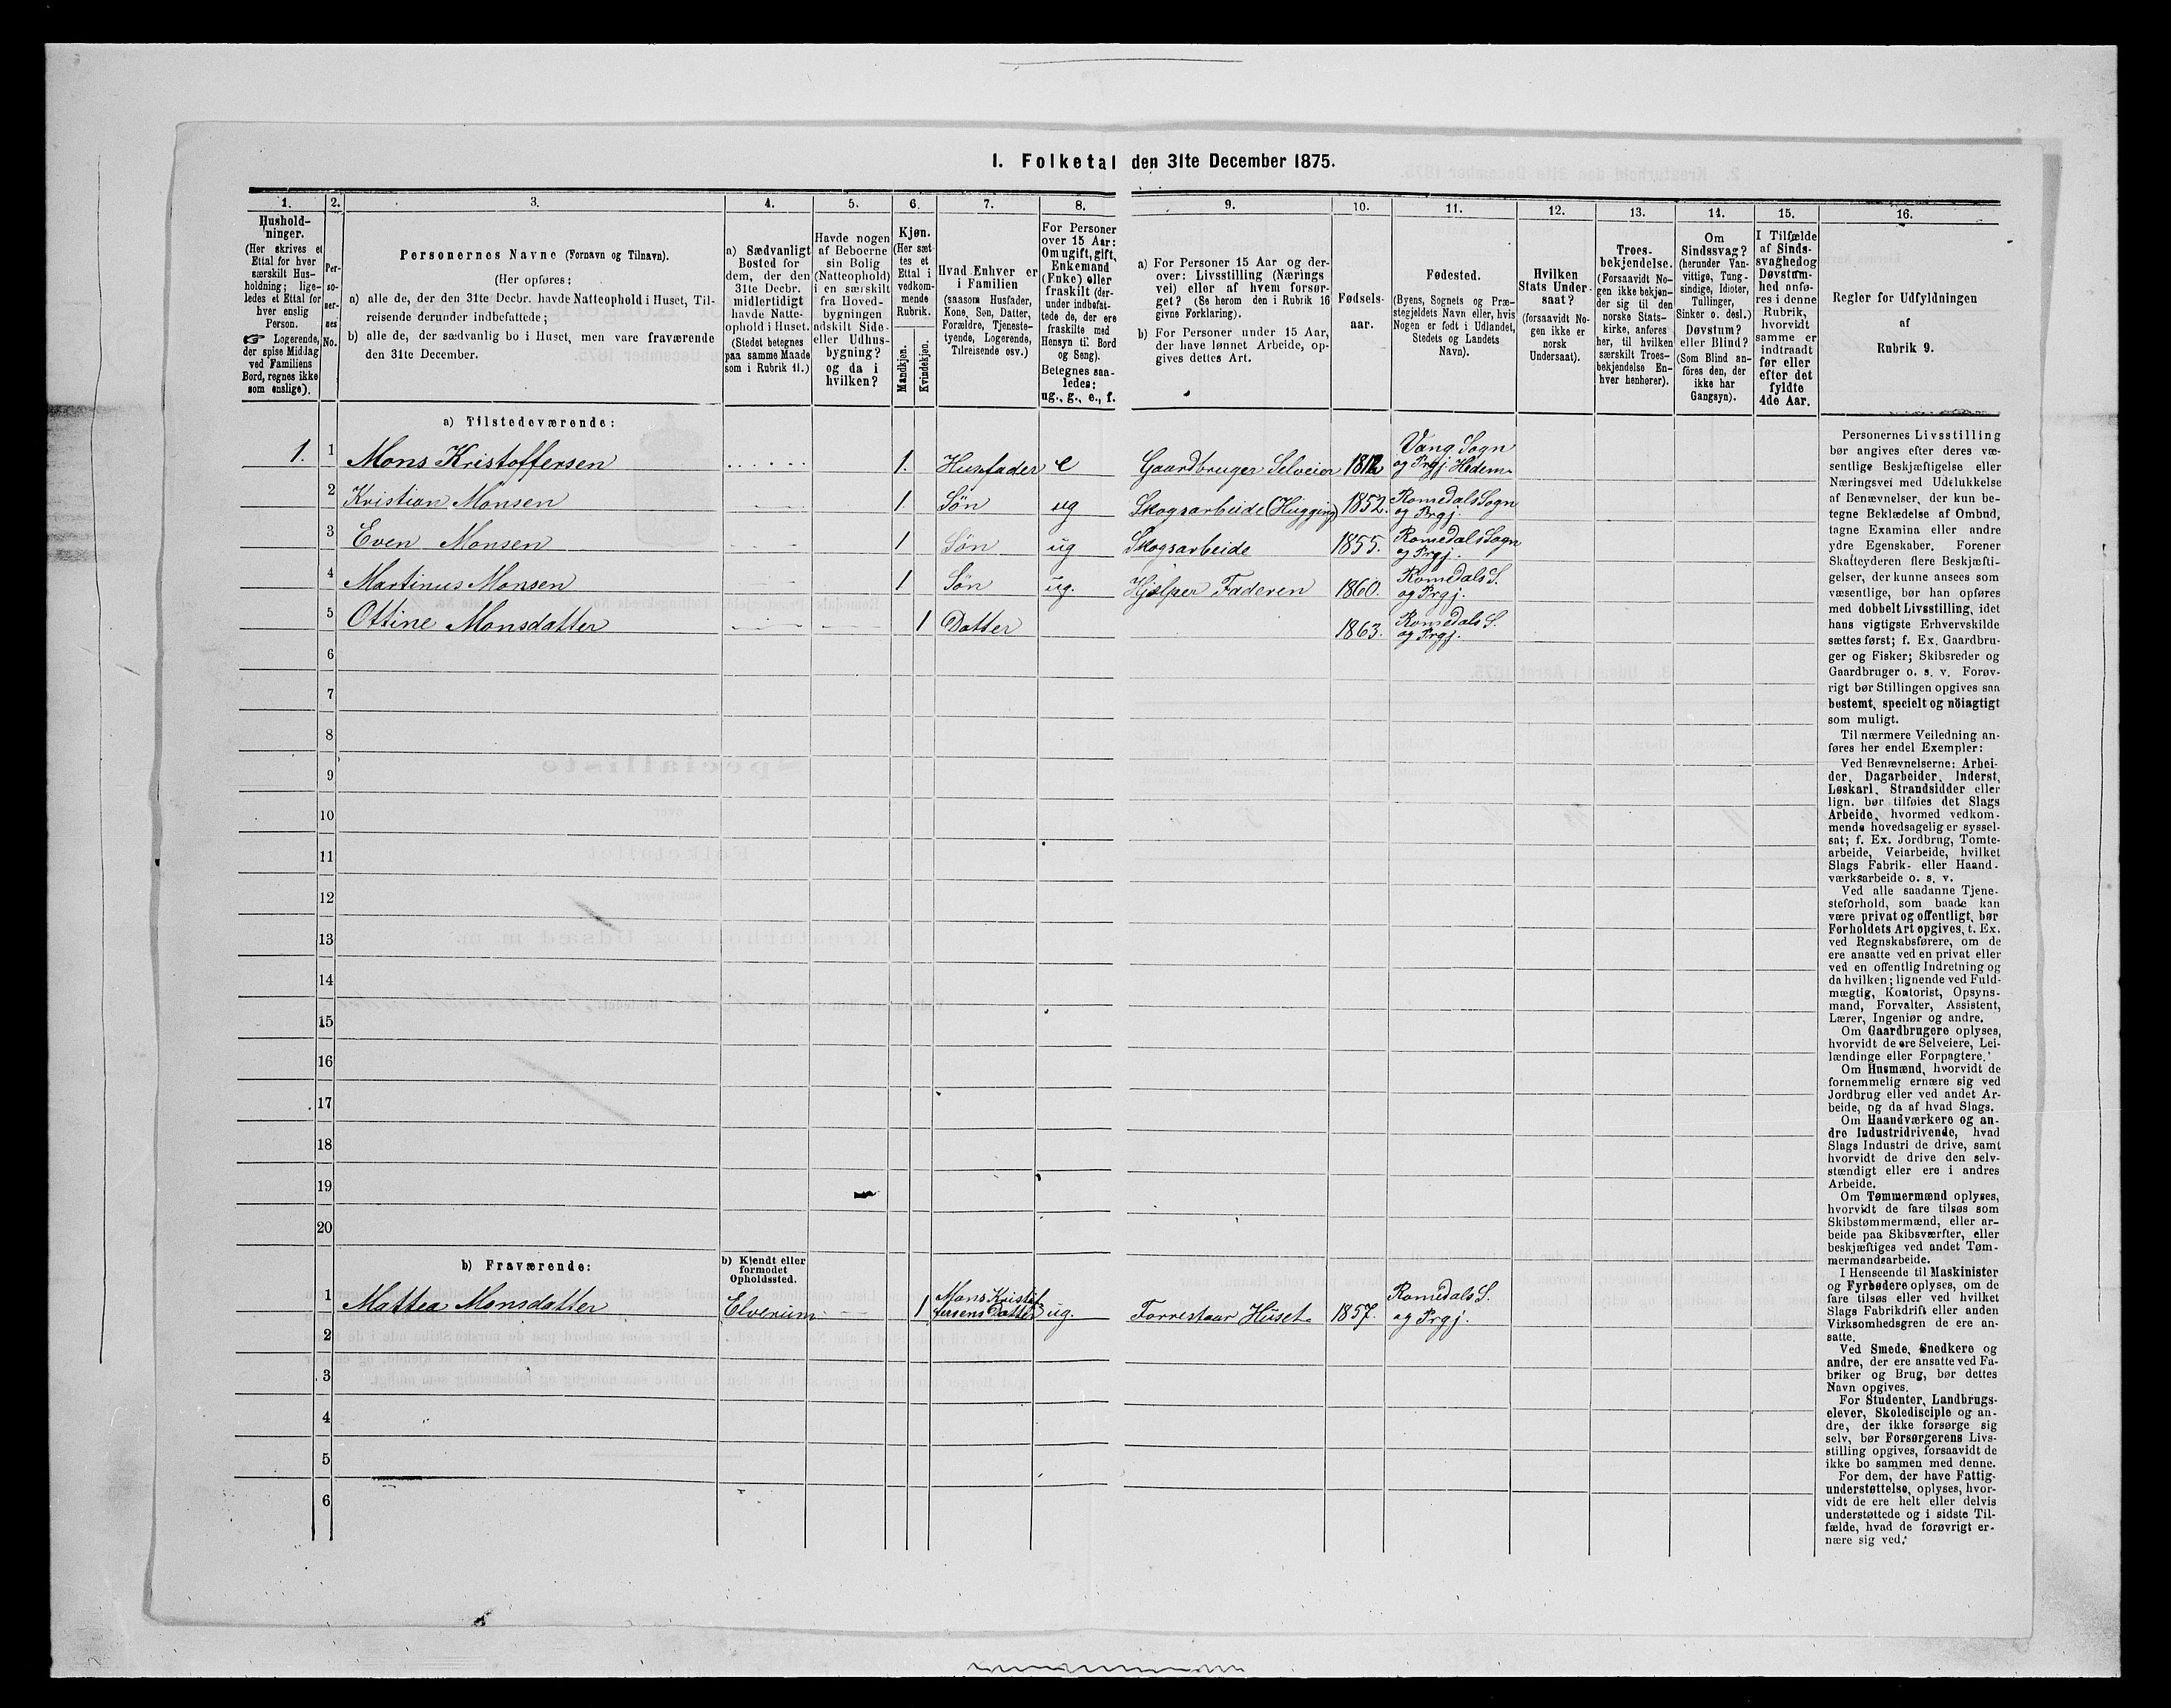 I. Folketal den 31te December 1875.
1.
Hushold-
ninger.
(Her skrives et
Ettal for hver
særskilt Hus-
holdning; lige-
ledes et Ettal for
hver enslig
Person.
☞ Logerende,
der spise Middag
ved Familiens
Bord, regnes ikke
som enslige).
2.
Per-
so-
ner-
nes
No.
3.
Personernes Navne (Fornavn og Tilnavn).
(Her opføres:
a) alle de, der den 31te Decbr. havde Natteophold i Huset, Til-
reisende derunder indbefattede;
b) alle de, der sædvanlig bo i Huset, men vare fraværende
den 31te December.
4.
a) Sædvanligt
Bosted for
dem, der den
31te Decbr.
midlertidigt
havde Natte-
ophold i Huset.
(Stedet betegnes
paa samme Maade
som i Rubrik 11.)
5.
Havde nogen
af Beboerne
sin Bolig
(Natteophold)
i en særskilt
fra Hoved-
bygningen
adskilt Side-
eller Udhus-
bygning?
og da i
hvilken?
6.
Kjøn.
(Her sæt-
tes et
Ettal i
vedkom-
mende
Rubrik.
Mandkjøn.
Kvindekjøn.
7.
Hvad Enhver er
i Familien
(saasom Husfader,
Kone, Søn, Datter,
Forældre, Tjeneste-
tyende, Logerende,
Tilreisende osv.)
8.
For Personer
over 15 Aar:
Om ugift, gift,
Enkemand
(Enke) eller
fraskilt (der-
under indbefat-
tede de, der ere
fraskilte med
Hensyn til Bord
og Seng).
Betegnes saa-
ledes:
ug., g., e., f.
9.
a) For Personer 15 Aar og der-
over: Livsstilling (Nærings
vei) eller af hvem forsør-
get? (Se herom den i Rubrik 16
givne Forklaring).
b) For Personer under 15 Aar,
der have lønnet Arbeide, op-
gives dettes Art.
10.
Fødsels-
aar.
11.
Fødested.
(Byens, Sognets og Præ-
stegjeldets Navn eller, hvis
Nogen er født i Udlandet,
Stedets og Landets
Navn).
12.
Hvilken
Stats Under-
saat?
(forsaavidt No-
gen ikke er
norsk
Undersaat).
13.
Troes-
bekjendelse.
(Forsaavidt No-
gen ikke bekjen-
der sig til den
norske Stats-
kirke, anføres
her, til hvilken
særskilt Troes-
bekjendelse En-
hver henhører).
14.
Om
Sindssvag?
(herunder Van-
vittige, Tung-
sindige, Idioter,
Tullinger,
Sinker o. desl.)
Døvstum?
eller Blind?
(Som Blind an-
føres den, der
ikke har
Gangsyn).
15.
I Tilfælde
af Sinds-
svaghed og
Døvstum-
hed anfø-
res i denne
Rubrik,
hvorvidt
samme er
indtraadt
før eller
efter det
fyldte
4de Aar.
16.
Regler for Udfyldningen
af
Rubrik 9.
a) Tilstedeværende:
1. 1 Mons Kristoffersen 1. Husfader e Gaardbruger Selveier 1812 Vang Sogn og Prgj. Hedem.
2 Kristian Monsen 1. Søn ug Skogsarbeide (Hugging) 1852. Romedals Sogn og Prgj.
3 Even Monsen 1 Søn ug Skogsarbeide 1855. Romedals Sogn og Prgj.
4 Martinus Monsen 1 Søn ug. Hjelper Faderen 1860. Romedals S. og Prgj.
5 Ottine Monsdatter 1 Datter 1863. Romedals S. og Prgj.
6
7
8
9
10
11
12
13
14
15
16
17
18
19
20
b) Fraværende:
b) Kjendt eller
formodet
Opholdssted.
1 Mattea Monsdatter Elverum 1 Mons Kristof fersens Datter ug. Forrestaar Huset. 1857. Romedals S. og Prgj.
2
3
4
5
6
Personernes Livsstilling
bør angives efter deres væ-
sentlige Beskjæftigelse eller
Næringsvei med Udelukkelse
af Benævnelser, der kun be-
tegne Beklædelse af Ombud,
tagne Examina eller andre
ydre Egenskaber. Forener
Skatteyderen flere Beskjæfti-
gelser, der kunne ansees som
væsentlige, bør han opføres
med dobbelt Livsstilling, idet
hans vigtigste Erhvervskilde
sættes først; f. Ex. Gaardbru-
ger og Fisker; Skibsreder og
Gaardbruger o. s. v. Forøv-
rigt bør Stillingen opgives saa
bestemt, specielt og nöiagtigt
som muligt.
Til nærmere Veiledning an-
føres her endel Exempler:
Ved Benævnelserne: Arbei-
der, Dagarbeider, Inderst,
Løskarl, Strandsidder eller
lign. bør tilføies det Slags
Arbeide, hvormed vedkom-
mende hovedsagelig er syssel-
sat; f. Ex. Jordbrug, Tomte-
arbeide, Veiarbeide, hvilket
Slags Fabrik- eller Haand-
værksarbeide o. s. v.
Ved alle saadanne Tjene-
steforhold, som baade kan
være privat og offentligt, bør
Forholdets Art opgives, t. Ex.
ved Regnskabsførere, om de
ere ansatte ved en privat eller
ved en offentlig Indretning og
da hvilken; lignende ved Fuld-
mægtig, Kontorist, Opsyns-
mand, Forvalter, Assistent,
Lærer, Ingeniør og andre.
Om Gaardbrugere oplyses,
hvorvidt de ere Selveiere, Lei-
lændinge eller Forpagtere.
Om Husmænd, hvorvidt de
fornemmelig ernære sig ved
Jordbrug eller ved andet Ar-
beide, og da af hvad Slags.
Om Haandværkere og an-
dre Industridrivende, hvad
Slags Industri de drive, samt
hvorvidt de drive den selv-
stændigt eller ere i andres
Arbeide.
Om Tømmermænd oplyses,
hvorvidt de fare tilsøs som
Skibstømmermænd, eller ar-
beide paa Skibsværfter, eller
beskjæftiges ved andet Tøm-
mermandsarbeide.
I Henseende til Maskinister
og Fyrbødere oplyses, om de
fare tilsøs eller ved hvilket
Slags Fabrikdrift eller anden
Virksomhedsgren de ere an-
satte.
Ved Smede, Snedkere og
andre, der ere ansatte ved Fa-
briker og Brug, bør dettes
Navn opgives.
For Studenter, Landbrugs-
elever, Skoledisciple og an-
dre, der ikke forsørge sig
selv, bør Forsørgerens Livs-
stilling opgives, forsaavidt de
ikke bo sammen med denne.
For dem, der have Fattig-
understøttelse, oplyses, hvor-
vidt de ere helt eller delvis
understøttede og i sidste Til-
fælde, hvad de forøvrigt er-
nære sig ved.